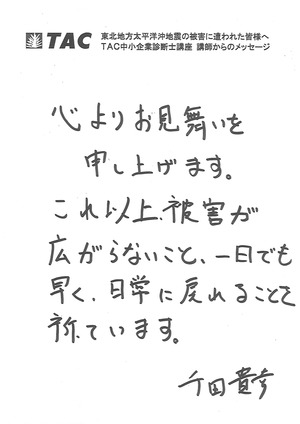 TAC
東北地方太平洋沖地震の被害に遭われた皆様へ
TAC中小企業診断士講座 講師からのメッセージ
心よりお見舞いを
申し上げます。
これ以上、被害が
広がらないこと、一日でも
早く、日常に戻れることを
祈ています。
千田貴幸